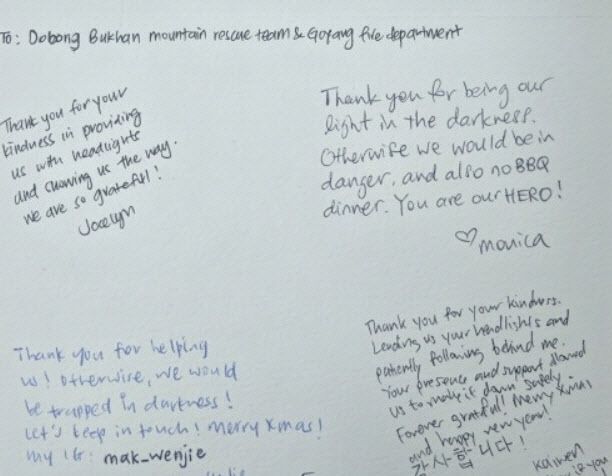 To: Dobong Bukhan mountain rescue team & Goyang fire department
Thank you for your
kindness in providing
us with headlights
and showing us the way.
We are so grateful!
Jocelyn
Thank you for being our
light in the darkness.
Otherwise we would be in
danger, and also no BBQ
dinner. You are our HERO!
♡ monica
Thank you for helping
us! otherwise, we would
be trapped in darkness!
Let's keep in touch! Merry Xmas!
my IG: mak_wenjie
Thank you for your kindness.
Lending us your headlights and
patiently following behind me.
Your presence and support allowed
us to make it down safely.
Forever grateful! Merry Xmas
and happy new year!
감사합니다!